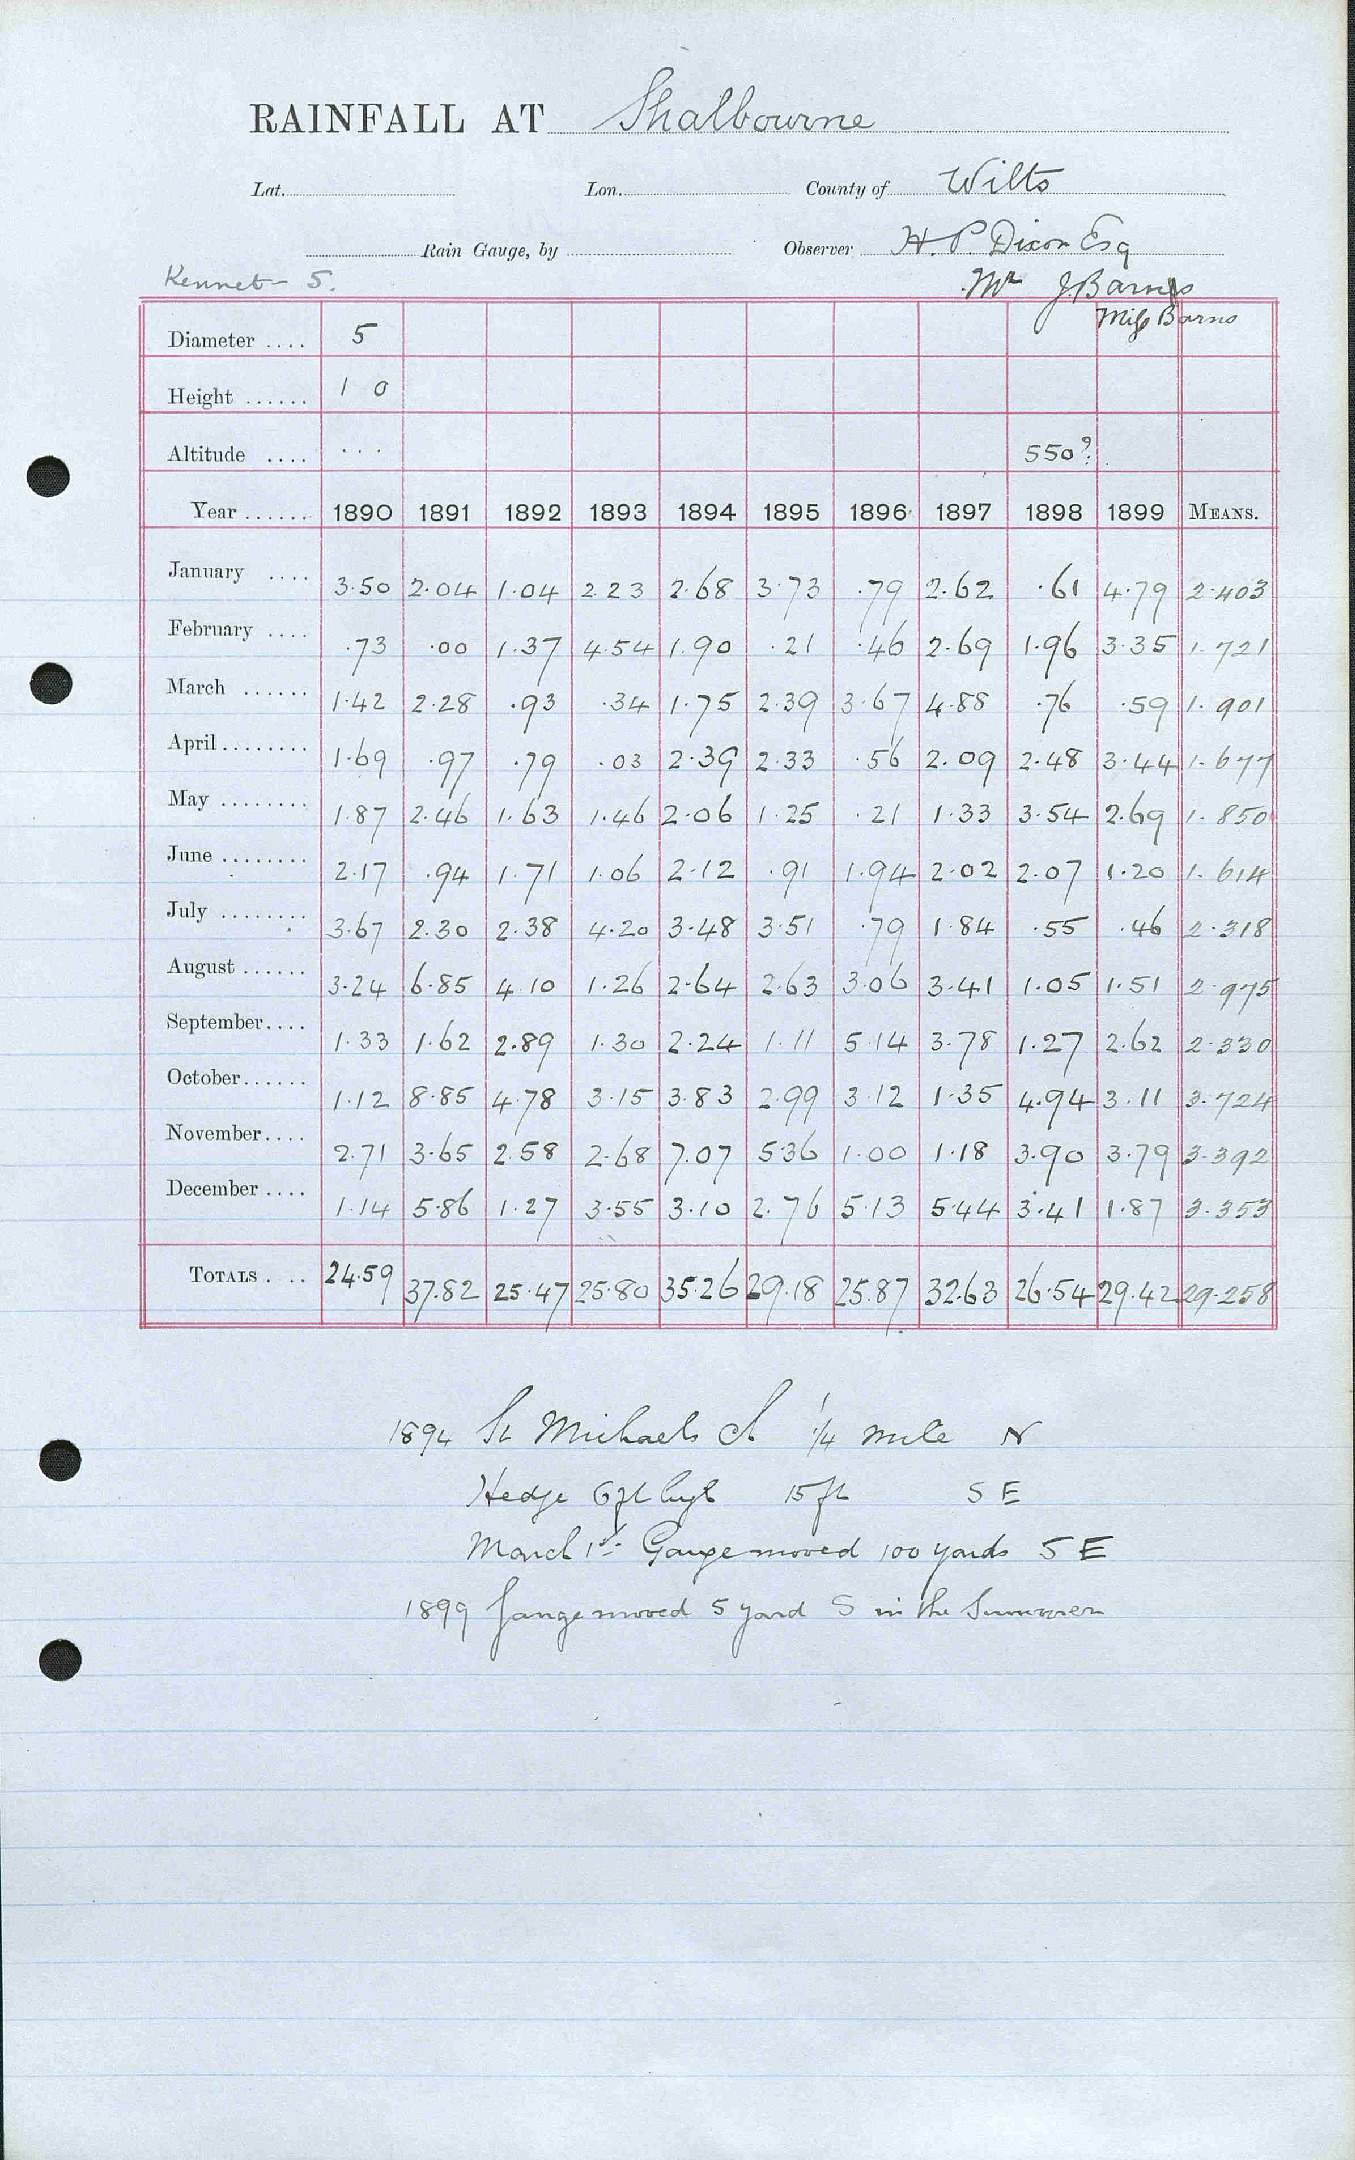 RAINFALL AT Shalbourne
Lat. Lon. County of Wilts
Rain Gauge, by Observer H. P. Dixon Esq
Kennet 5. Mr J. Barnes
Miss Barns
Diameter .... 5
Height ...... 1 0
Altitude .... ... 550?
Year ...... 1890 1891 1892 1893 1894 1895 1896 1897 1898 1899 MEANS.
January .... 3.50 2.04 1.04 2.23 2.68 3.73 .79 2.62 .61 4.79 2.403
February .... .73 .00 1.37 4.54 1.90 .21 .46 2.69 1.96 3.35 1.721
March ...... 1.42 2.28 .93 .34 1.75 2.39 3.67 4.88 .76 .59 1.901
April ........ 1.69 .97 .79 .03 2.39 2.33 .56 2.09 2.48 3.44 1.677
May ........ 1.87 2.46 1.63 1.46 2.06 1.25 .21 1.33 3.54 2.69 1.850
June ........ 2.17 .94 1.71 1.06 2.12 .91 1.94 2.02 2.07 1.20 1.614
July ........ 3.67 2.30 2.38 4.20 3.48 3.51 .79 1.84 .55 .46 2.318
August ...... 3.24 6.85 4.10 1.26 2.64 2.63 3.06 3.41 1.05 1.51 2.975
September.... 1.33 1.62 2.89 1.30 2.24 1.11 5.14 3.78 1.27 2.62 2.330
October...... 1.12 8.85 4.78 3.15 3.83 2.99 3.12 1.35 4.94 3.11 3.724
November.... 2.71 3.65 2.58 2.68 7.07 5.36 1.00 1.18 3.90 3.79 3.392
December .... 1.14 5.86 1.27 3.55 3.10 2.76 5.13 5.44 3.41 1.87 3.353
TOTALS .... 24.59 37.82 25.47 25.80 35.26 29.18 25.87 32.63 26.54 29.42 29.258
1894 St Michaels Ch 1/4 mile N
Hedge 6ft high 15 ft S E
March 1st Gauge moved 100 yards S E
1899 Gauge moved 5 yard S in the Summer